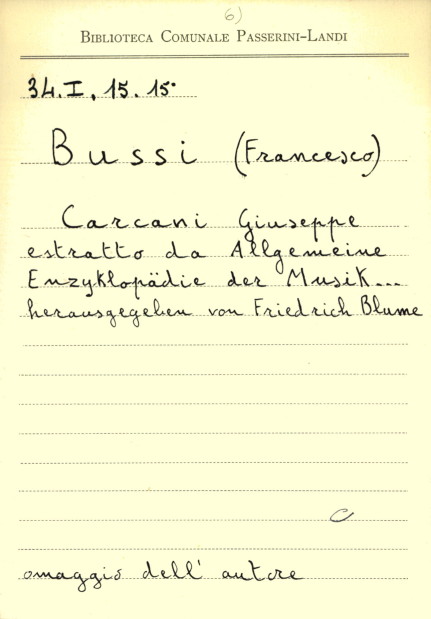 6)
BIBLIOTECA COMUNALE PASSERINI-LANDI
34.I.15.15.
Bussi (Francesco)
Carcani Giuseppe
estratto da Allgemeine
Enzyklopädie der Musik...
herausgegeben von Friedrich Blume
C
omaggio dell' autore